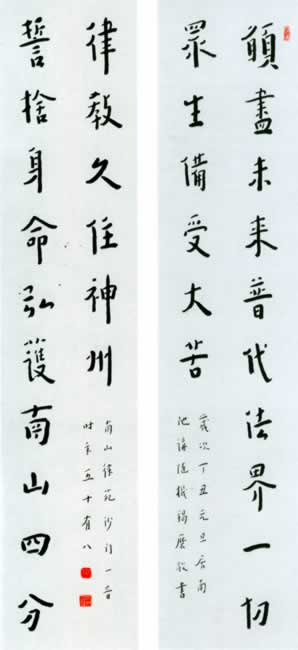 願盡未来普代法界一切
眾生備受大苦
歲次丁丑元旦南
誓捨身命弘護南山四分
律教久住神州
南山律苑沙門一音
時年五十有八